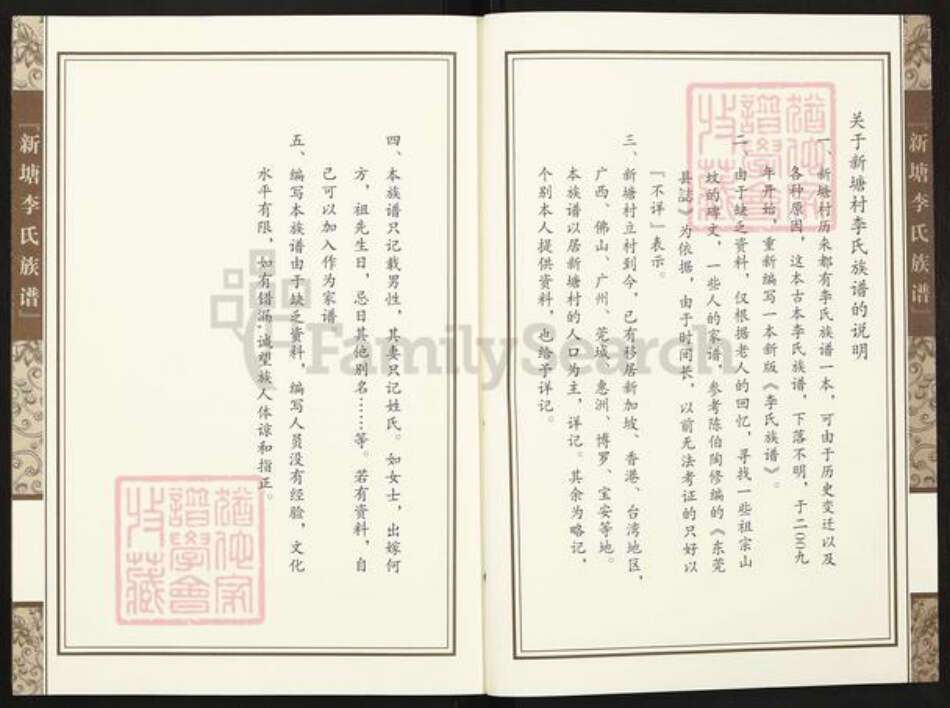 关于新塘村李氏族谱的说明
一、新塘村历来都有李氏族谱一本，可由于历史变迁以及
各种原因，这本古本李氏族谱，下落不明，于二〇〇九
年开始，重新编写一本新版《李氏族谱》。
二、由于缺乏资料，仅根据老人的回忆，寻找一些祖宗山
坟的碑文，一些人的家谱，参考陈伯陶修编的《东莞
县誌》为依据，由于时间长，以前无法考证的只好以
『不详』表示。
三、新塘村立村到今，已有移居新加坡、香港、台湾地区，
广西、佛山、广州、莞城、惠洲、博罗、宝安等地。
本族谱以居新塘村的人口为主，详记。其余为略记，
个别本人提供资料，也给予详记。
四、本族谱只记载男性，其妻只记姓氏。如女士，出嫁何
方，祖先生日，忌日其他别名……等。若有资料，自
己可以加入作为家谱
五、编写本族谱由于缺乏资料，编写人员没有经验，文化
水平有限，如有错漏，诚望族人体谅和指正。
『新塘李氏族谱』
『新塘李氏族谱』
FamilySearch
猶他家
譜學會
收藏
猶他家
譜學會
收藏